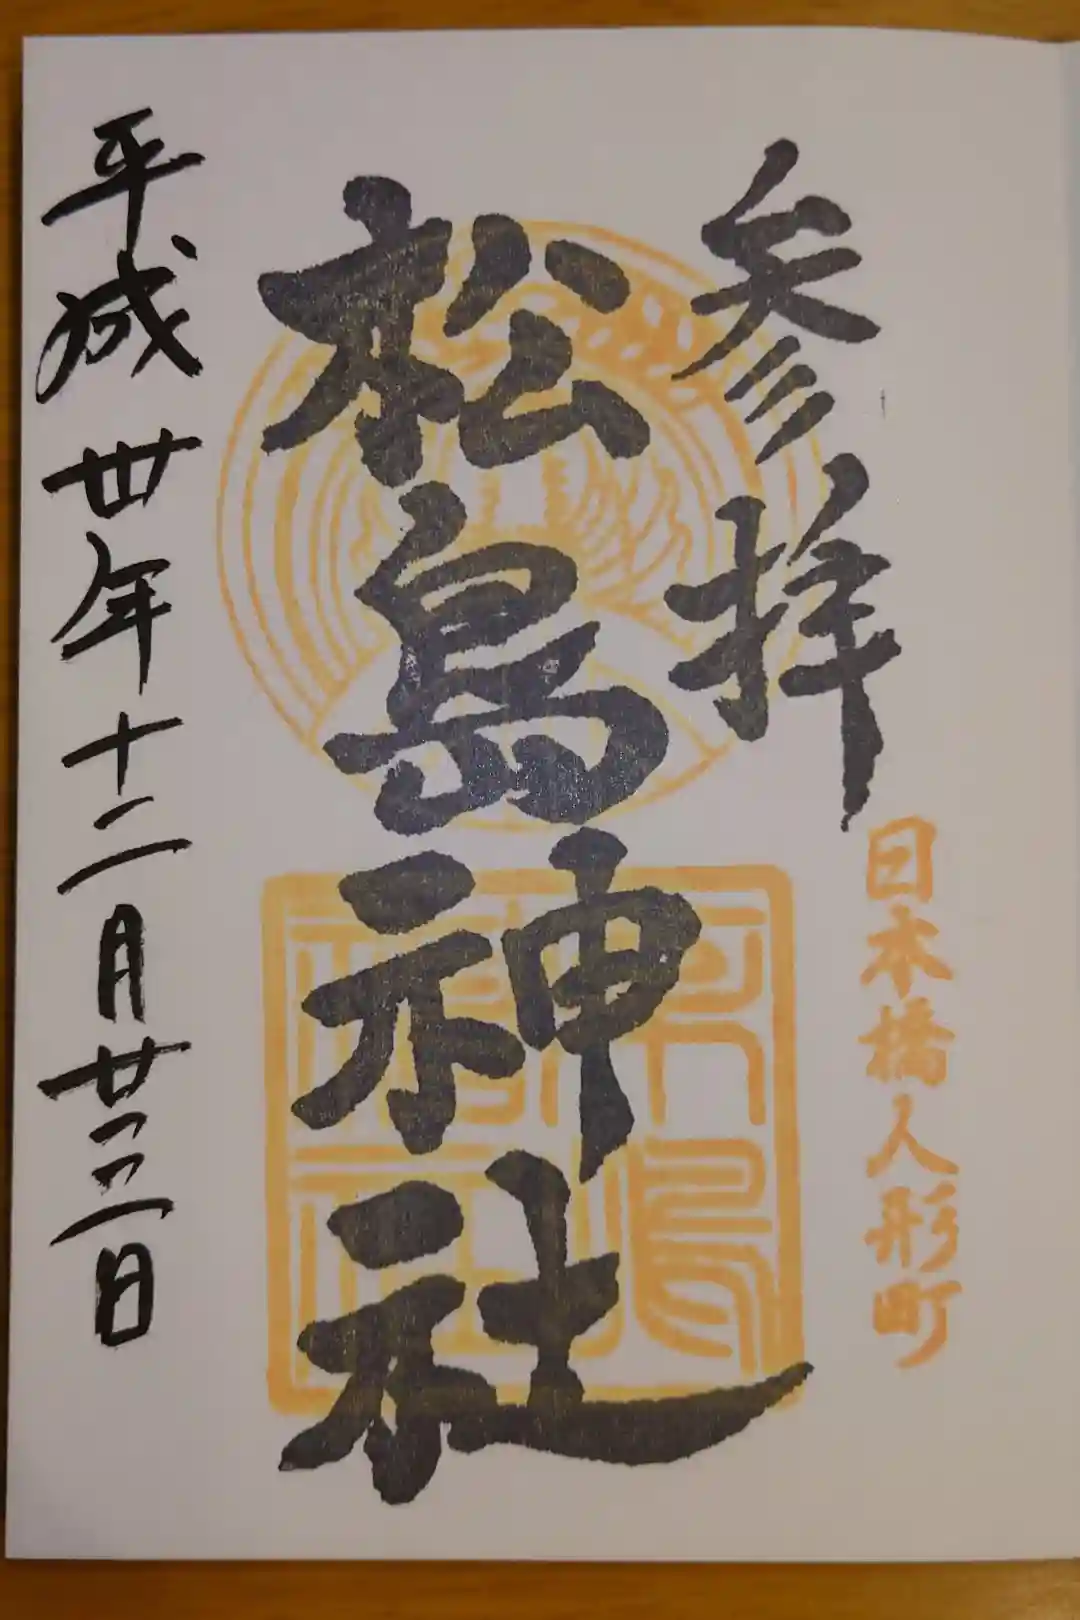 参拝
日本橋人形町
松島神社
平成丗年十二月廿三日